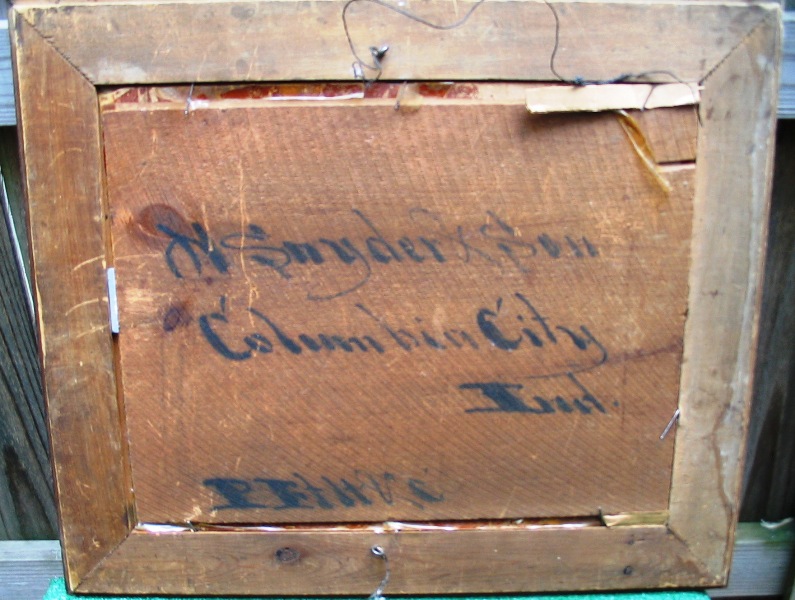 Snyder & Son
Columbia City
Ind.